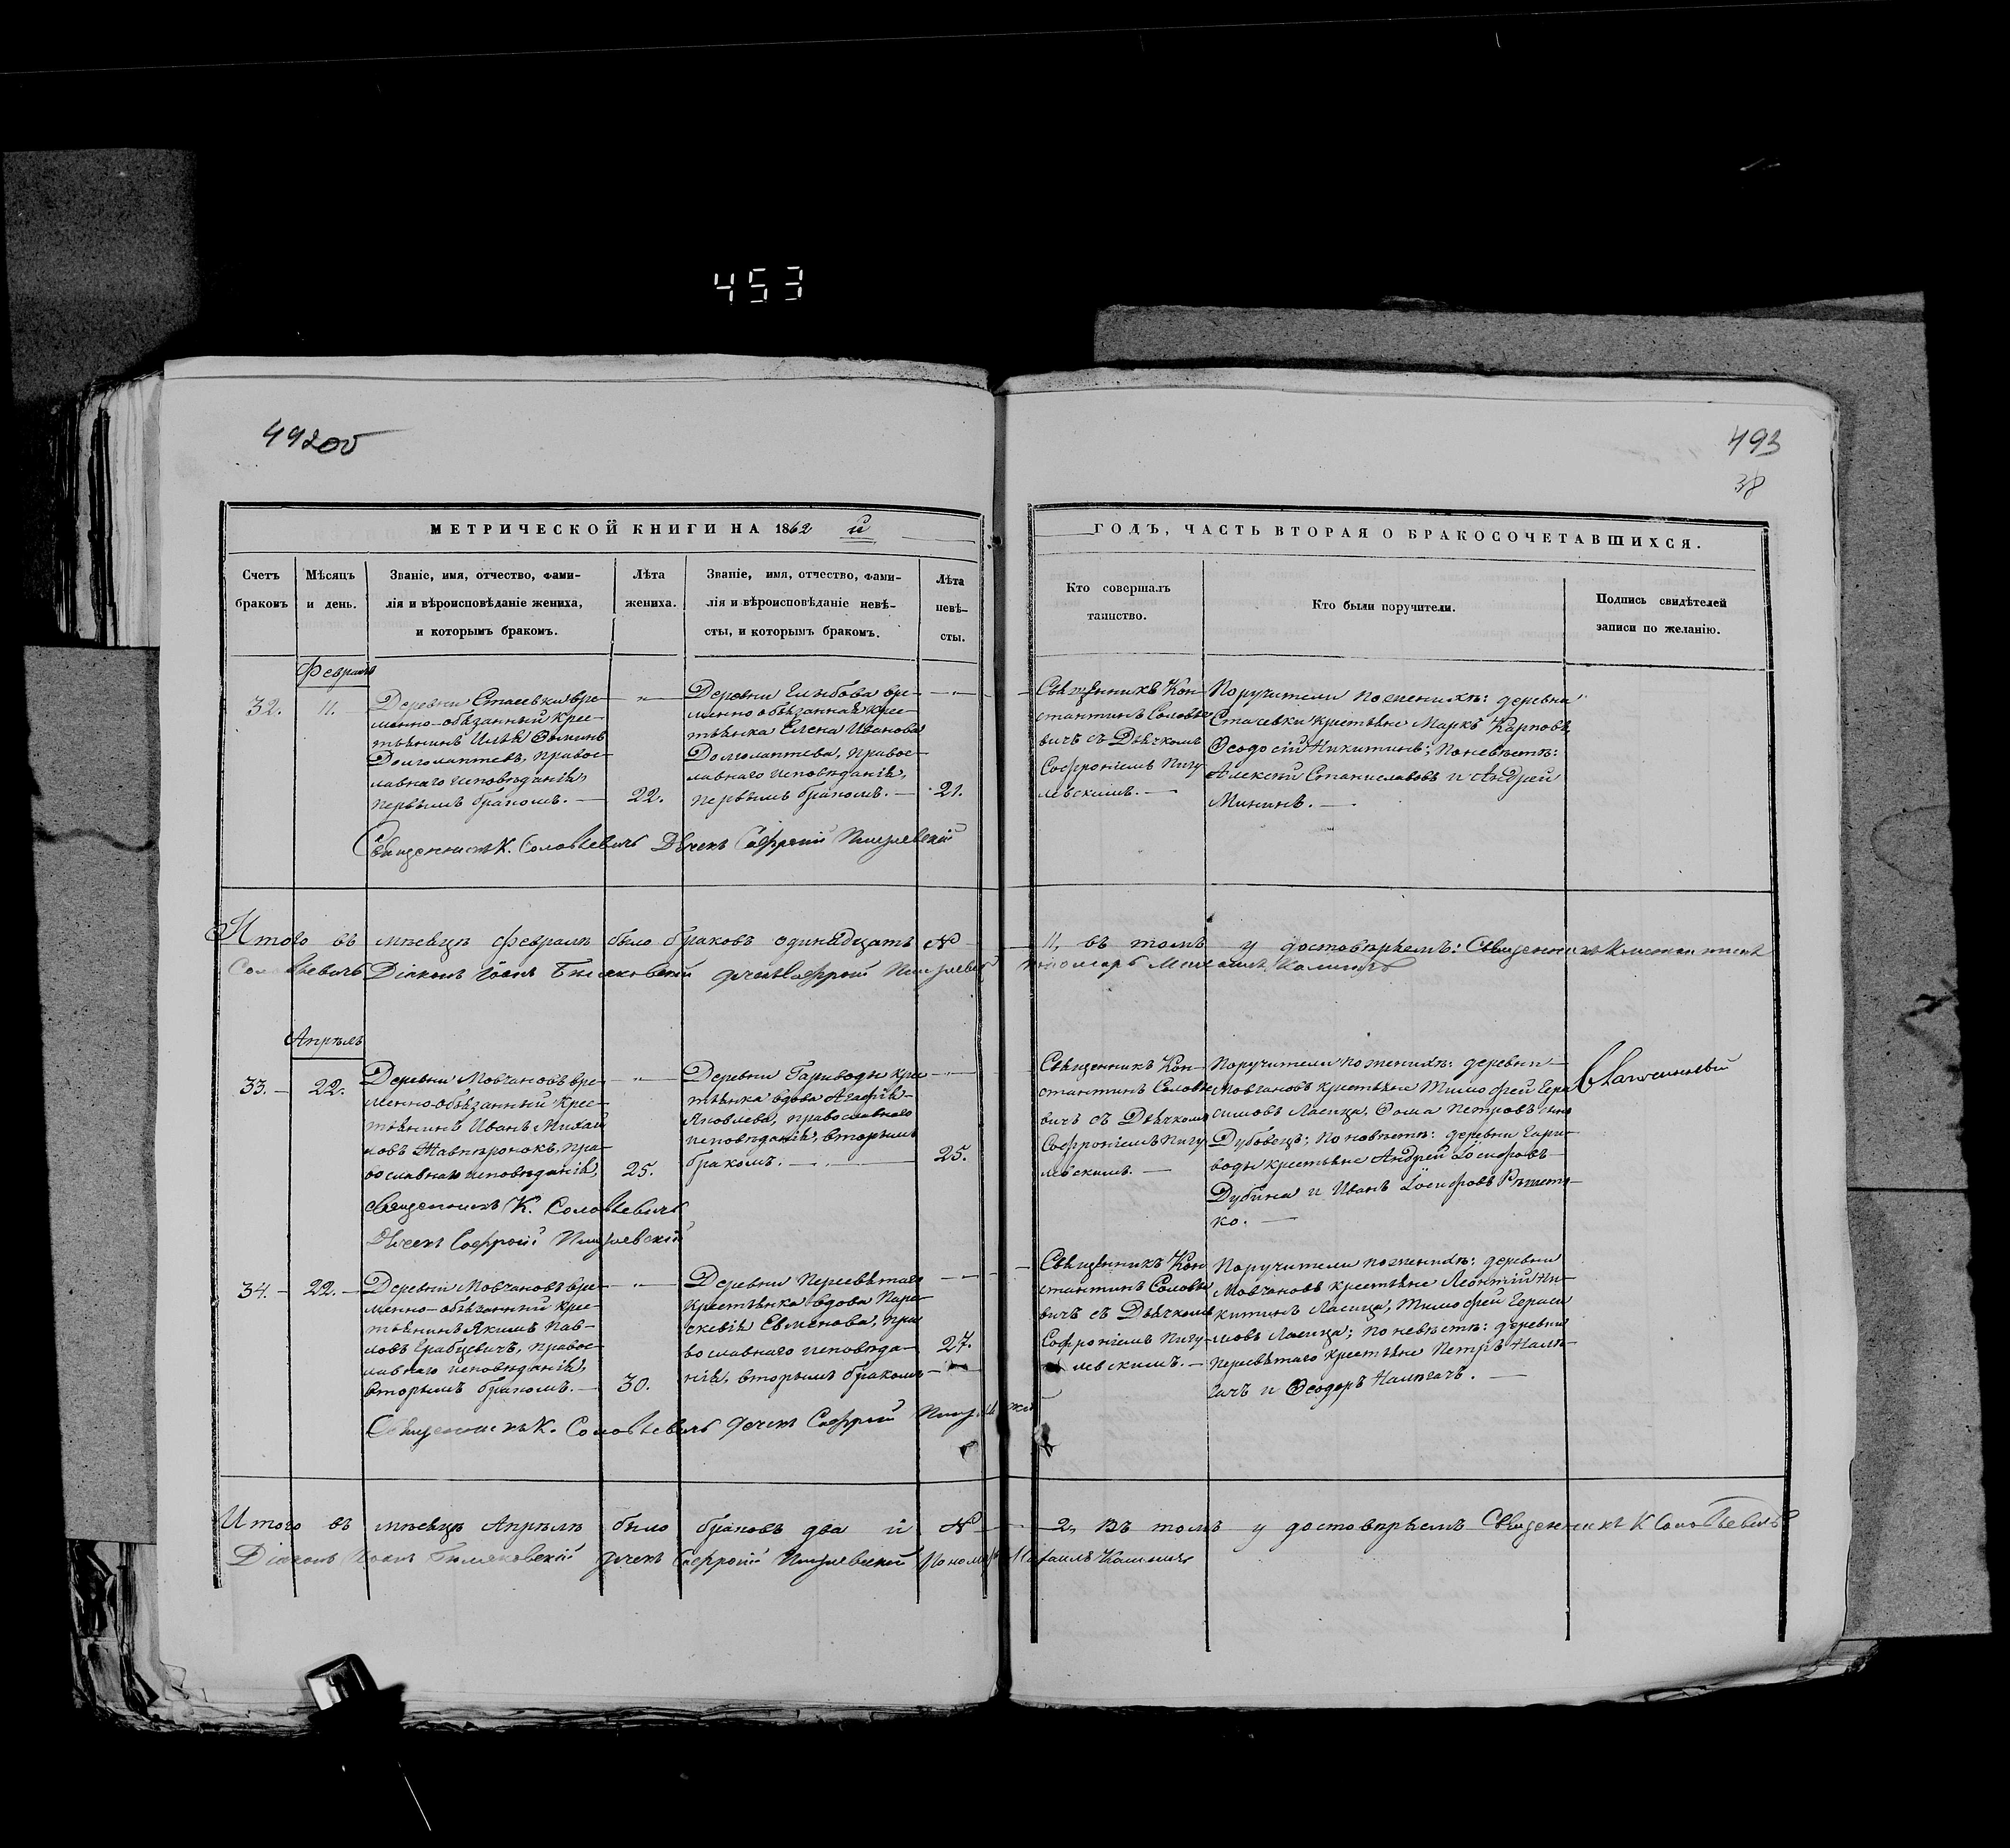 453
492об
493
38
МЕТРИЧЕСКОЙ КНИГИ НА 1862 й
ГОДЪ, ЧАСТЬ ВТОРАЯ О БРАКОСОЧЕТАВШИХСЯ.
Счетъ
браковъ
Мѣсяцъ
и день.
Званіе, имя, отчество, фами-
лія и вѣроисповѣданіе жениха,
и которымъ бракомъ.
Лѣта
жениха.
Званіе, имя, отчество, фами-
лія и вѣроисповѣданіе невѣ-
сты, и которымъ бракомъ.
Лѣта
невѣ-
сты.
Кто совершалъ
таинство.
Кто были поручители.
Подпись свидѣтелей
записи по желанію.
Февраль
32.
11.
Деревни Стаевки вре-
менно-обязанный крес-
тьянинъ Илья Ѳоминъ
Долголаптевъ, правос-
лавнаго исповѣданія,
первымъ бракомъ.
22.
Деревни вре-
менно обязанная крес-
тьянка Елена Иванова
Долголаптева, правос-
лавнаго исповѣданія,
первымъ бракомъ.
21.
Священникъ Кон-
стантинъ Соловье
вичъ съ Дьячкомъ
Софроніемъ Пигу
левскимъ.
Поручители по женихѣ: деревни
Стаевки крестьяне Маркъ Карповъ,
Ѳеодосій Никитинъ; по невѣстѣ:
Алексій Станиславовъ и Андрей
Мининъ.
Священникъ К. Соловьевичъ Дьячекъ Софроній Пигулевскій
Итого въ мѣсяцѣ Февралѣ было браковъ одинадцать № 11, въ томъ удостовѣряемъ: Священникъ Константинъ
Соловьевичъ Діаконъ Іоаннъ дьячекъ Софроній Пигулевскій пономарь Михаилъ
Апрѣль
33.
22.
Деревни Мовчановъ вре-
менно-обязанный крес-
тьянинъ Иванъ Михай
ловъ пра-
вославнаго исповѣданія,
25.
Деревни Гариводы крес
тьянка вдова Агафія
Яковлева, православнаго
исповѣданія, вторымъ
бракомъ.
25.
Священникъ Кон-
стантинъ Соловье
вичъ съ Дьячкомъ
Софроніемъ Пигу
левскимъ.
Поручители по женихѣ: деревни
Мовчановъ крестьяне Тимофей Гера
симовъ Ласица, Ѳома Петровъ сынъ
Дубовецъ; по невѣстѣ: деревни Гари-
воды крестьяне Андрей Іосифовъ
Дубина и Иванъ Іосифовъ Рѣшет-
ко.
Священникъ К. Соловьевичъ
Дьячекъ Софроній Пигулевскій
34.
22.
Деревни Мовчановъ вре-
менно-обязанный крес-
тьянинъ Якимъ Пав-
ловъ Грабцевичъ, правос-
лавнаго исповѣданія,
вторымъ бракомъ.
30.
Деревни Пересвѣтаго
крестьянка вдова Пара-
скевія Евменова, пра
вославнаго исповѣда-
нія, вторымъ бракомъ
27.
Священникъ Кон
стантинъ Соловье
вичъ съ Дьячкомъ
Софроніемъ Пигу-
левскимъ.
Поручители по женихѣ: деревни
Мовчановъ крестьяне Леонтій Ни-
китинъ Ласица, Тимофей Гераси
мовъ Ласица; по невѣстѣ: деревни
Пересвѣтаго крестьяне Петръ Налѣ-
гачъ и Ѳеодоръ Налѣгачъ.
Священникъ К. Соловьевичъ дьячекъ Софроній
Итого въ мѣсяцѣ Апрѣлѣ было браковъ два й № 2, въ томъ удостовѣряемъ Священникъ К Соловьевичъ
Діаконъ Іоаннъ дьячекъ Софроній Пигулевскій Пономарь Михаилъ